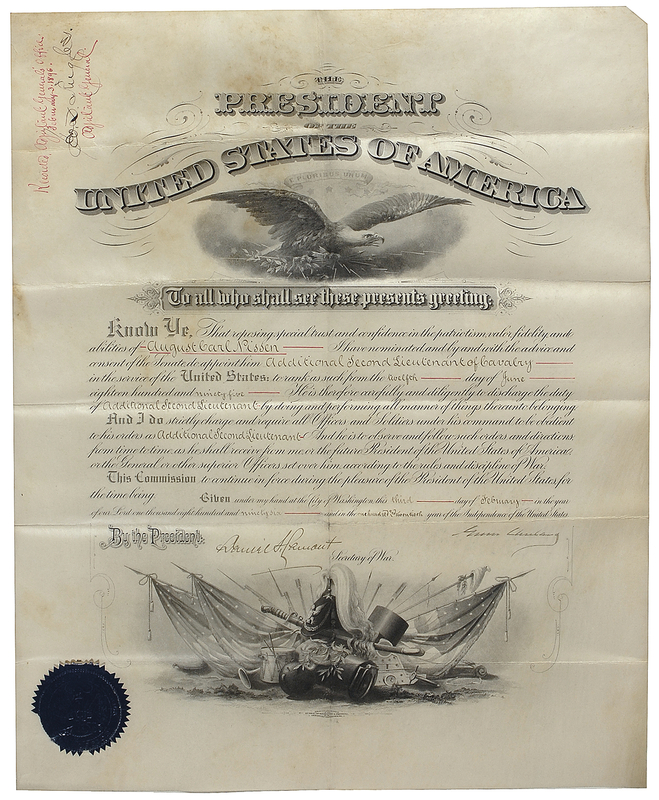 Recorded Adjutant General's Office
February 3, 1896.
Adjutant General.
THE
PRESIDENT
OF THE
UNITED STATES OF AMERICA
E PLURIBUS UNUM
To all who shall see these presents greeting:
Know Ye, That reposing special trust and confidence in the patriotism, valor, fidelity, and
abilities of August Carl Nissen I have nominated and by and with the advice and
consent of the Senate do appoint him Additional Second Lieutenant of Cavalry
in the service of the United States: to rank as such from the twelfth day of June
eighteen hundred and ninety five He is therefore carefully and diligently to discharge the duty
of Additional Second Lieutenant by doing and performing all manner of things thereunto belonging.
And I do strictly charge and require all Officers and Soldiers under his command to be obedient
to his orders as Additional Second Lieutenant And he is to observe and follow such orders and directions,
from time to time, as he shall receive from me or the future President of the United States of America,
or the General or other superior Officers set over him, according to the rules and discipline of War.
This Commission to continue in force during the pleasure of the President of the United States, for
the time being.
Given under my hand at the City of Washington, this third day of February in the year
of our Lord one thousand eight hundred and ninety six and in the one hundred & twentieth year of the Independence of the United States.
By the President:
Daniel S Lamont
Secretary of War.
Grover Cleveland